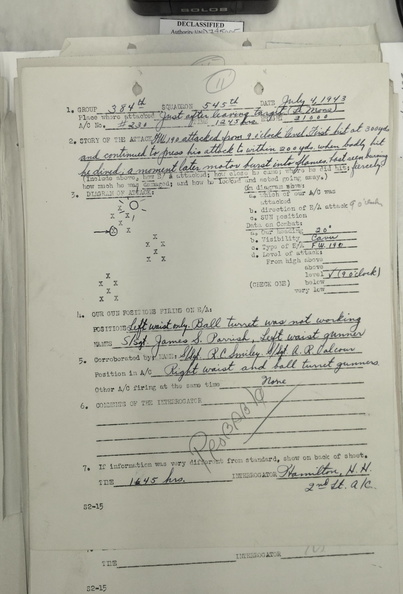 DECLASSIFIED
Authority
11
1. GROUP 384th SQUADRON 545th DATE July 4, 1943
Place where attacked Just after leaving target (Le Mans)
A/C No. #230 1243 hrs. 21000
2. STORY OF THE ATTACK FW 190 attacked from 9 o'clock level. First hit at 300 yds.
and continued to press his attack to within 200 yds. when badly hit
he dived, a moment later motor burst into flames, last seen burning
(Include above, how E/A attacked; how close he came; where he did his; fiercely)
how much he was damaged; and how he looked and acted going away.
3. DIAGRAM OF ATTACK: On diagram show:
a. Which of our A/C was
attacked
b. direction of E/A attack 9 o'clock
c. SUN position
Data on Combat:
a. Our heading 20°
b. Visibility Cavu
c. Type of E/A F.W. 190
d. Level of attack:
From high above
above
level √ (9 o'clock)
(CHECK ONE) below
very low
4. OUR GUN POSITIONS FIRING ON E/A:
POSITIONS Left waist only. Ball turret was not working
NAMES S/Sgt. James S. Parrish, Left waist gunner
5. Corroborated by: NAME: S/Sgt. R.C. Smiley S/Sgt. A.R.
Position in A/C Right waist and ball turret gunners
Other A/C firing at the same time None
6. COMMENTS OF THE INTERROGATOR
PROBABLE
7. If information was very different from standard, show on back of sheet.
TIME 1645 hrs. INTERROGATOR Hamilton, H.H.
2nd Lt. A/C.
S2-15
TIME INTERROGATOR
S2-15